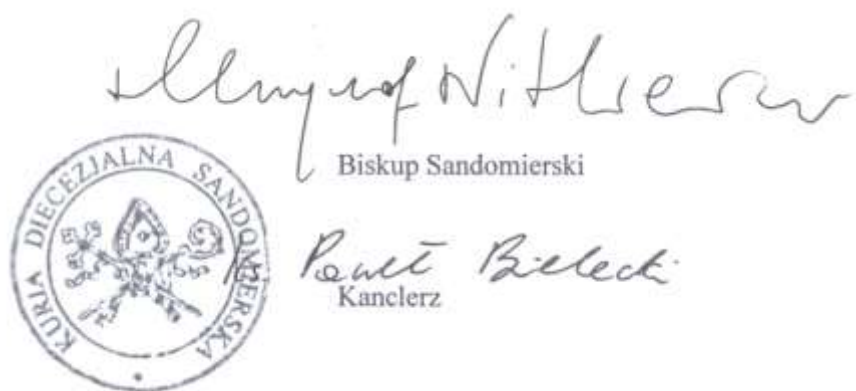 + Krzysztof Nitkiewicz
Biskup Sandomierski
KURIA DIECEZJALNA SANDOMIERSKA
ks. Paweł Bielecki
Kanclerz